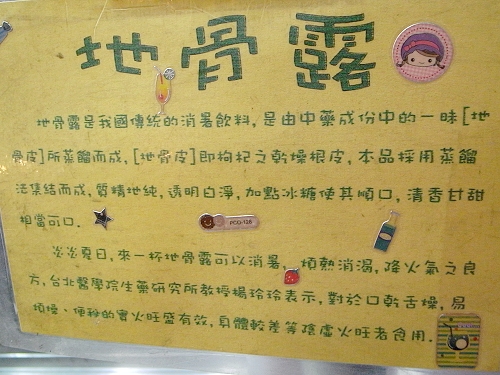 地骨露
地骨露是我國傳統的消暑飲料,是由中藥成份中的一味[地
骨皮]所蒸餾而成,[地骨皮]即枸杞之乾燥根皮,本品採用蒸餾
法集結而成,質精地純,透明白淨,加點冰糖使其順口,清香甘甜
相當可口.
炎炎夏日,來一杯地骨露可以消暑、煩熱消渴,降火氣之良
方,台北醫學院生藥研究所教授楊玲玲表示,對於口乾舌燥,易
煩燥、便秘的實火旺盛有效,身體較差等陰虛火旺者食用.